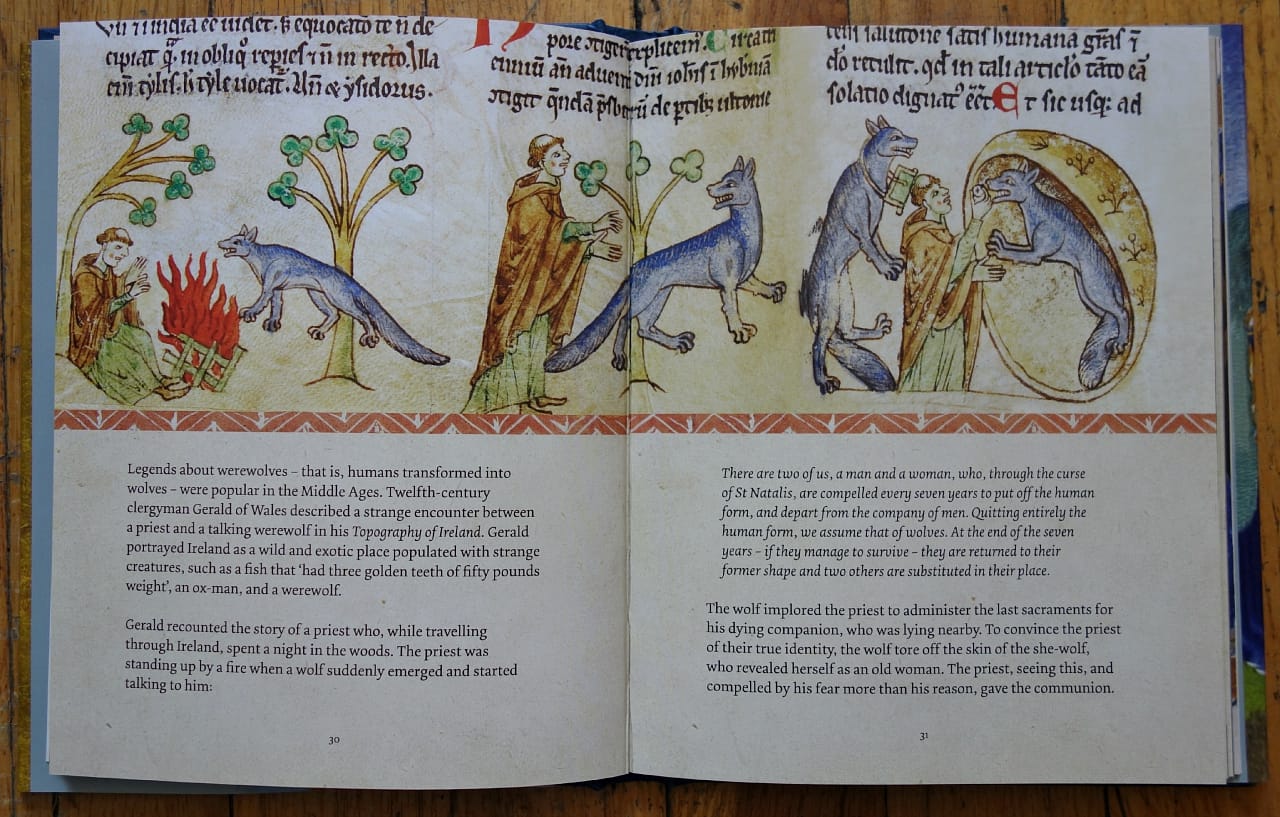 cipiat
ysidorus.
solatio
Legends about werewolves – that is, humans transformed into
wolves – were popular in the Middle Ages. Twelfth-century
clergyman Gerald of Wales described a strange encounter between
a priest and a talking werewolf in his Topography of Ireland. Gerald
portrayed Ireland as a wild and exotic place populated with strange
creatures, such as a fish that ‘had three golden teeth of fifty pounds
weight’, an ox-man, and a werewolf.
Gerald recounted the story of a priest who, while travelling
through Ireland, spent a night in the woods. The priest was
standing up by a fire when a wolf suddenly emerged and started
talking to him:
30
There are two of us, a man and a woman, who, through the curse
of St Natalis, are compelled every seven years to put off the human
form, and depart from the company of men. Quitting entirely the
human form, we assume that of wolves. At the end of the seven
years – if they manage to survive – they are returned to their
former shape and two others are substituted in their place.
The wolf implored the priest to administer the last sacraments for
his dying companion, who was lying nearby. To convince the priest
of their true identity, the wolf tore off the skin of the she-wolf,
who revealed herself as an old woman. The priest, seeing this, and
compelled by his fear more than his reason, gave the communion.
31